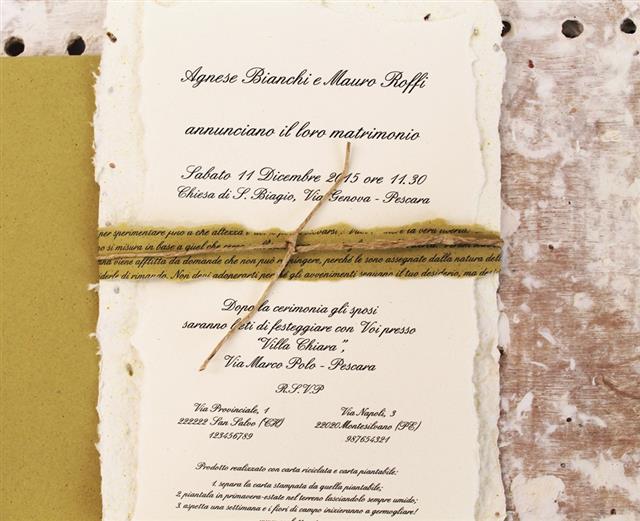 Agnese Bianchi e Mauro Roffi
annunciano il loro matrimonio
Sabato 11 Dicembre 2015 ore 11.30
Chiesa di S. Biagio, Via Genova - Pescara
per sperimentare fino a che altezza
no si misura in base a quel che
ana viene afflitta da domande che non può respingere, perché le sono assegnate dalla natura dell
siderle di rimando. Non devi adoperarti perché gli avvenimenti seguano il tuo desiderio, ma des
Dopo la cerimonia gli sposi
saranno lieti di festeggiare con Voi presso
"Villa Chiara",
Via Marco Polo - Pescara
R.S.V.P
Via Provinciale, 1
222222 San Salvo (CH)
123456789
Via Napoli, 3
22020Montesilvano (PE)
987654321
Prodotto realizzato con carta riciclata e carta piantabile;
1. separa la carta stampata da quella piantabile;
2 piantala in primavera-estate nel terreno lasciandolo sempre umido;
3. aspetta una settimana e i fiori di campo inizieranno a germogliare!